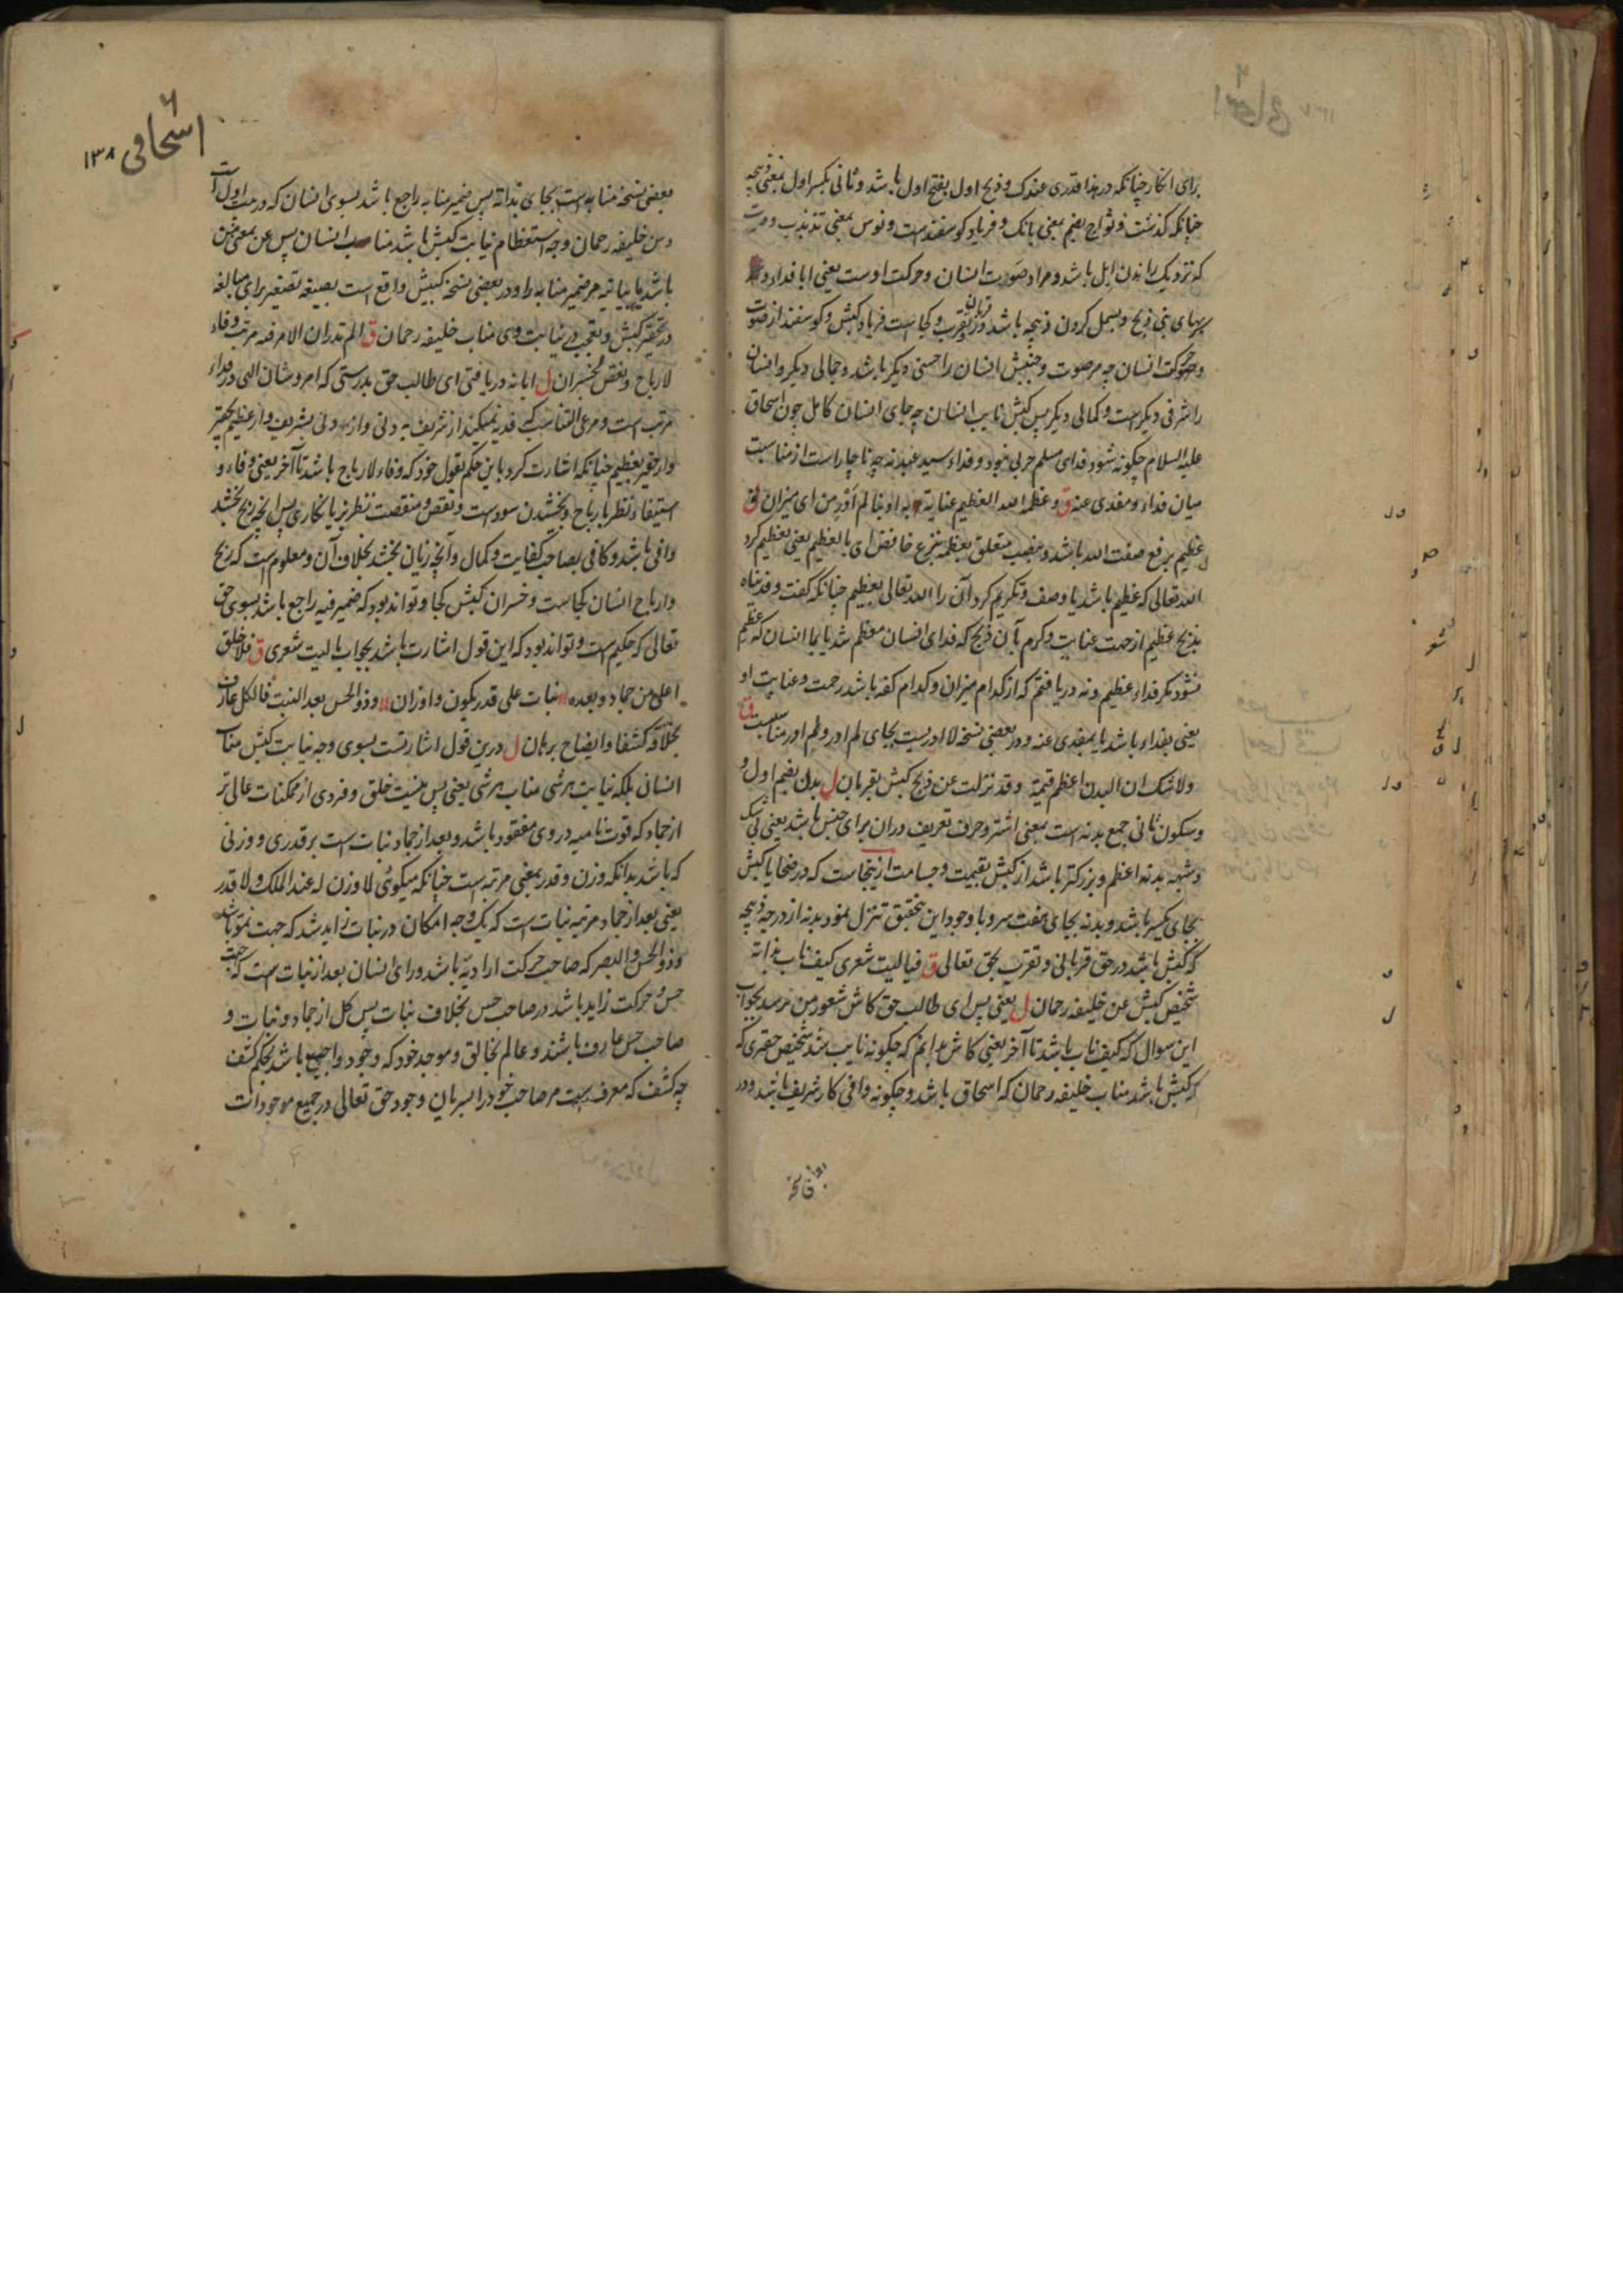 برای انکار چنانکه درهذا قدری عندک و ذبح اول بفتح اول باشد و ثانی بکسر اول بمعنی ذبیحه
چنانکه گذشت و ثواج بضم بمعنی بانک و فریاد کوسفندست و نوس بمعنی تذبذب و صوت
که نزدیک راندن ابل باشد و مراد صورت انسان و حرکت اوست یعنی ایا فداء
بهای نبی ذبح و بسمل کردن ذبیحه باشد برای تقرب و کجا است فریاد کبش و کوسفند از صوت
و حرکت انسان چه مر صوت و جنبش انسان را حسنی دیکر باشد و جمالی دیکر و انسان
را شرفی دیکر است و کمالی دیکر پس کبش نایب انسان چه جای انسان کامل چون اسحاق
علیه السلام چکونه شود فدای مسلم حربی نبود و فداء سید عبد نه چه ناچار است از مناسبت
میان فداء و مفدی عنه ق وعظمه الله العظیم عنایة به او بنا لم ادر من ای میزان ق
عظیم برفع صفت الله باشد و بنصب متعلق بعظمه بنزع خافض ای بالعظیم یعنی تعظیم کرد
الله تعالی که عظیم باشد یا وصف و تکریم کرد آن را الله تعالی بعظیم چنانکه گفت و فدیناه
بذبح عظیم از جهت عنایت و کرم بآن ذبح که فدای انسان معظم شد یا بما انسان که عظیم
نشود مکر فداء عظیم و نه دریافتم که از کدام میزان و کدام کفه باشد رحمت و عنایت او
یعنی بفداء باشد یا بمفدی عنه و در بعضی نسخه لا ادر یست بجای لم ادر و لم ادر مناسبست ق
ولا شک ان البدن اعظم قیمة وقد نزلت عن ذبح کبش بقربان ل بدن بضم اول و
و سکون ثانی جمع بدنه است بمعنی اشتر و حرف تعریف دران برای جنس باشد یعنی بی شک
و شبهه بدنه اعظم و بزرکتر باشد از کبش بقیمت و جسامت ازینجاست که در ضحایا کبش
بجای یکسر باشد و بدنه بجای هفت سر و با وجود این بتحقیق تنزل نمود بدنه از درجه ذبیحه
که کبش باشد در حق قربانی و تقرب بحق تعالی ق فیا لیت شعری کیف ناب بذاته
شخیص کبش عن خلیفه رحمان ل یعنی پس ای طالب حق کاش شعور من مرسد بجواب
این سوال که کیف ناب باشد تا آخر یعنی کاش بدانم که چکونه نایب شد شخیص حقیری که
که کبش باشد مناب خلیفه رحمان که اسحاق باشد و چکونه وافی کار شریف باشد و در
اسحاقی ۱۳۸
بعضی نسخه منابه است بجای بذاته پس ضمیر منابه راجع باشد بسوی انسان که در بیت اول است
و من خلیفه رحمان وجه استعظام نیابت کبش باشد مناب انسان پس عن بمعنی من
باشد یا بیانیه مر ضمیر منابه را و در بعضی نسخه کبیش واقع است بصیغه تصغیر برای مبالغه
در تحقیر کبش و تعجب در نیابت وی مناب خلیفه رحمان ق الم تدر ان الامر فیه مرتب وفاء
لارباح و نقص لخسران ل ایا نه دریافتی ای طالب حق بدرستی که امر و شان الهی در فداء
مرتب است و مرعی التناسب که فدیه میکنند از شریف به دنی و از دنی بشریف و از عظیم بحقیر
و از حقیر بعظیم چنانکه اشارت کرد باین حکم بقول خود که وفاء لارباح باشد تا آخر یعنی وفاء و
استیفاء نظر بارباح و بخشیدن سود است و نقص و منقصت نظر بزیانکاری پس آنچه ربح بخشد
وافی باشد و کافی بصاحب کفایت و کمال و آنچه زیان بخشد بخلاف آن و معلوم است که ربح
و ارباح انسان کجاست و خسران کبش کجا و تواند بود که ضمیر فیه راجع باشد بسوی حق
تعالی که حکیم است و تواند بود که این قول اشارت باشد بجواب یا لیت شعری ق فلا خلق
اعلی من جماد و بعده نبات علی قدر یکون و اوزان وذو الحس بعد النبت فالکل عارف
بخلاقه کشفا و ایضاح برهان ل درین قول اشارتست بسوی وجه نیابت کبش مناب
انسانی بلکه نیابت هر شی مناب هر شی یعنی پس نیست خلق و فردی از ممکنات عالی تر
از جماد که قوت نامیه در وی مفقود باشد و بعد از جماد نبات است بر قدری و وزنی
که باشد بدانکه وزن و قدر بمعنی مرتبه است چنانکه میکوئی لا وزن له عند الملک و لا قدر
یعنی بعد از جماد مرتبه نبات است که یک وجه امکان در نبات زاید شد که جهت نمو باشد
وذو الحس و البصر که صاحب حرکت ارادیه باشد ورای انسان بعد از نبات است که جهت
حس و حرکت زاید باشد در صاحب حس بخلاف نبات پس کل از جماد و نبات و
صاحب حس عارف باشند و عالم بخالق و موجد خود که وجود واجبی باشد بحکم کشف
چه کشف که معرف است مر صاحب خود را سریان وجود حق تعالی در جمیع موجودات